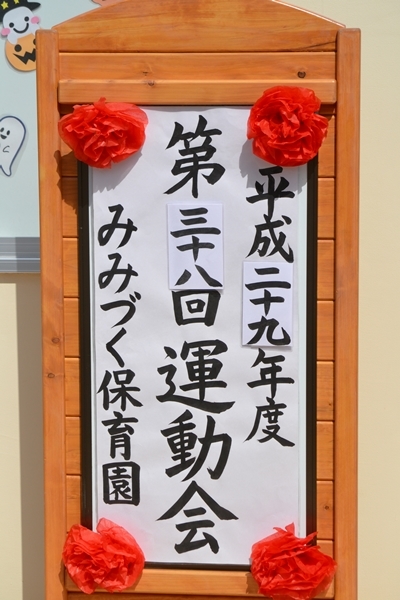 平成二十九年度
第三十八回運動会
みみづく保育園